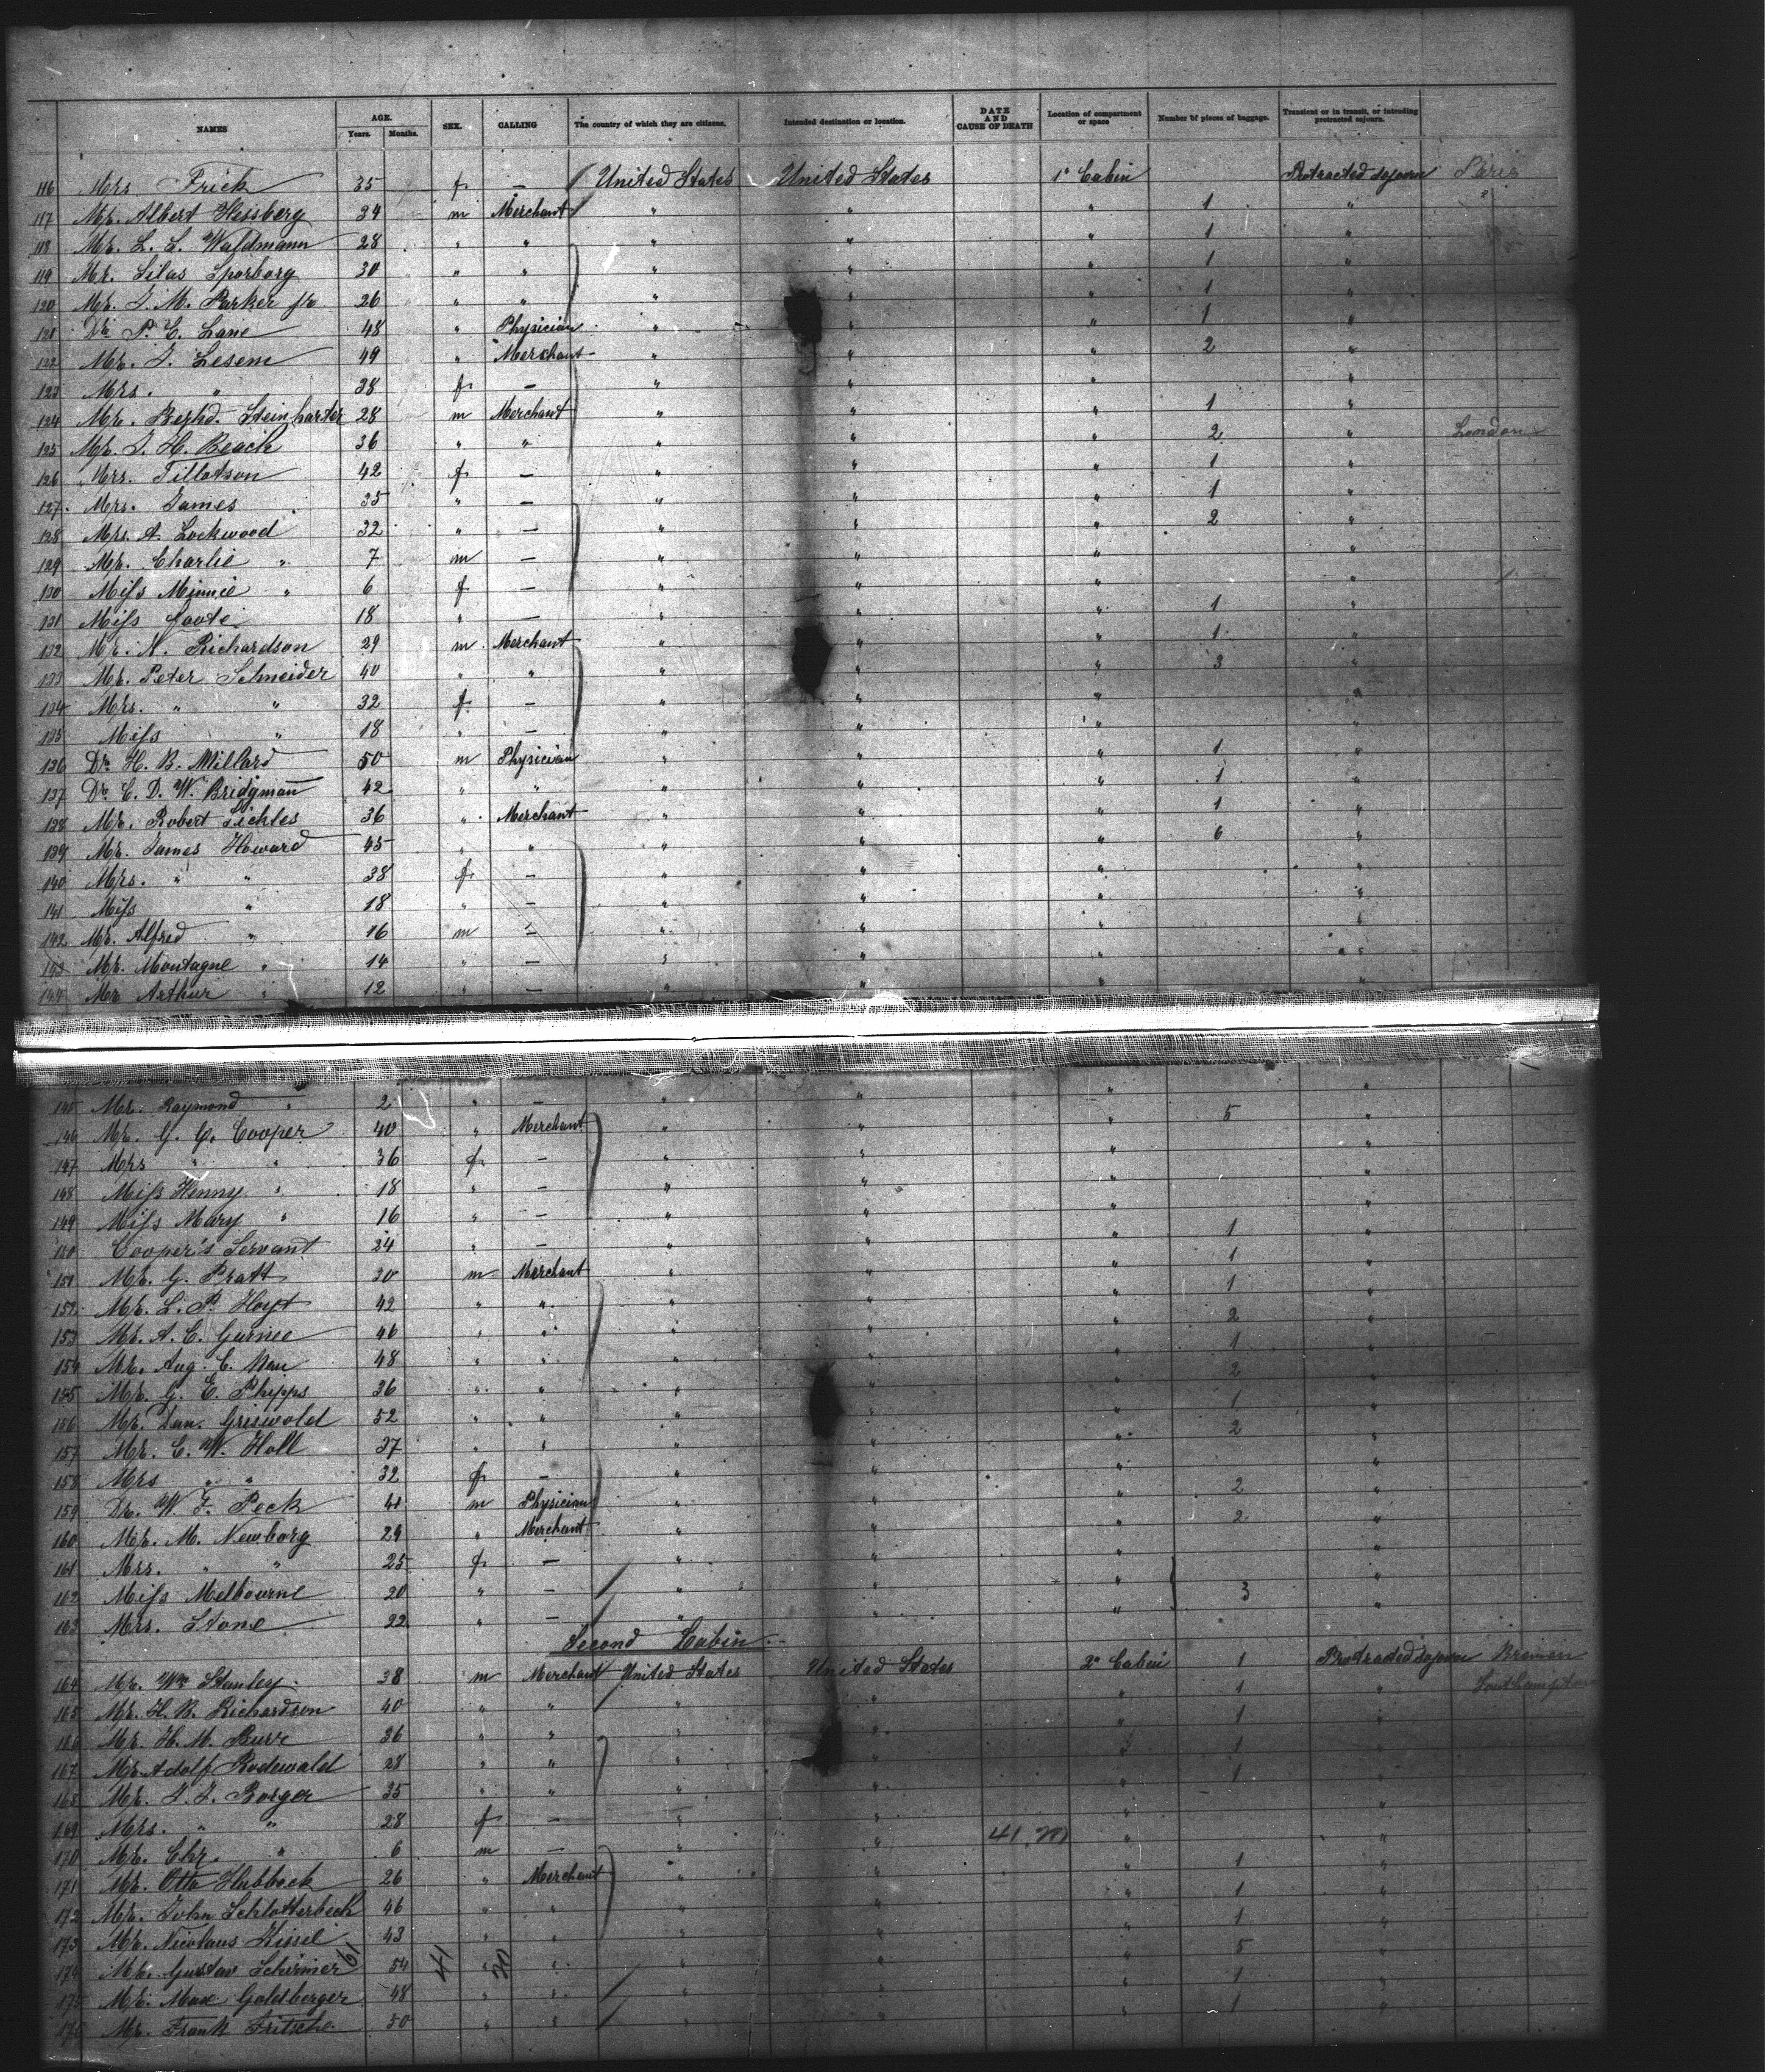 NAMES AGE. Years. Months. SEX. CALLING The country of which they are citizens. Intended destination or location. DATE AND CAUSE OF DEATH Location of compartment or space Number of pieces of baggage. Transient or in transit, or intending protracted sojourn.
116 Mrs Frick 35 f — United States United States 1a Cabin Protracted sojourn Paris
117 Mr. Albert Hessberg 34 m Merchant " " " 1 " "
118 Mr. L. L. Waldmann 28 " " " " " 1 "
119 Mr. Silas Sporborg 30 " " " " " 1 "
120 Mr. J. M. Parker jr 26 " " " " " 1 "
121 Dr. P. C. Lane 48 " Physician " " " 1 "
122 Mr. J. Lesem 49 " Merchant " " " 2 "
123 Mrs. " 38 f — " " " "
124 Mr. Bernhd. Steinharter 28 m Merchant " " " 1 "
125 Mr. J. H. Beach 36 " " " " " 2 " London
126 Mrs. Tillotson 42 f — " " " 1 "
127 Mrs. James 35 " — " " " 1 "
128 Mrs. A. Lockwood 32 " — " " " 2 "
129 Mr. Charlie " 7 m — " " " "
130 Miss Minnie " 6 f — " " " "
131 Miss Foote 18 " — " " " 1 "
132 Mr. N. Richardson 29 m Merchant " " " 1 "
133 Mr. Peter Schneider 40 " " " " " 3 "
134 Mrs. " " 32 f — " " " "
135 Miss " 18 " — " " " "
136 Dr. H. B. Millard 50 m Physician " " " 1 "
137 Dr. C. D. W. Bridgman 42 " " " " " 1 "
138 Mr. Robert Sichles 36 " Merchant " " " 1 "
139 Mr. James Howard 45 " " " " " 6 "
140 Mrs. " " 38 f — " " " "
141 Miss " 18 " — " " " "
142 Mr. Alfred " 16 m — " " " "
143 Mr. Montagne " 14 " — " " " "
144 Mr. Arthur " 12 — " " " "
145 Mr. Raymond " 2 " — " " " "
146 Mr. G. C. Cooper 40 " Merchant " " " 5 "
147 Mrs " " 36 f — " " " "
148 Miss Henny " 18 " — " " " "
149 Miss Mary " 16 " — " " " "
150 Cooper's Servant 24 " — " " " 1 "
151 Mr. G. Pratt 30 m Merchant " " " 1 "
152 Mr. L. P. Hoyt 42 " " " " " 1 "
153 Mr. A. C. Gurnee 46 " " " " " 2 "
154 Mr. Aug. C. Nau 48 " " " " " 1 "
155 Mr. G. E. Phipps 36 " " " " " 2 "
156 Mr. Dan. Griswold 52 " " " " " 1 "
157 Mr. C. W. Holl 37 " " " " " 2 "
158 Mrs " " 32 f — " " " "
159 Dr. W. F. Peck 41 m Physician " " " 2 "
160 Mr. M. Newborg 29 " Merchant " " " 2 "
161 Mrs. " " 25 f — " " " "
162 Miss Melbourne 20 " — " " " 3 "
163 Mrs. Stone 22 " — " " " "
Second Cabin
164 Mr. Wm Stanley 38 m Merchant United States United States 2a Cabin 1 Protracted sojourn Bremen
165 Mr. H. B. Richardson 40 " " " " 1 " Southampton
166 Mr. H. M. Burr 36 " " " " " 1 "
167 Mr. Adolf Rodewald 28 " " " " " 1 "
168 Mr. J. J. Borger 35 " " " " " 1 "
169 Mrs. " " 28 f — " " " "
170 Mr. Chr. " 6 m — " " 41, 20 " "
171 Mr. Otto Hubbock 26 " Merchant " " " 1 "
172 Mr. John Schlotterbeck 46 " " " " " 1 "
173 Mr. Nicolaus Kissel 43 " " " " " 1 "
174 Mr. Gustav Schirmer 61 54 41 " 20 " " " " 5 "
175 Mr. Max Goldberger 48 " " " " " 1 "
176 Mr. Frank Fritsche. 50 " " " " " 1 "